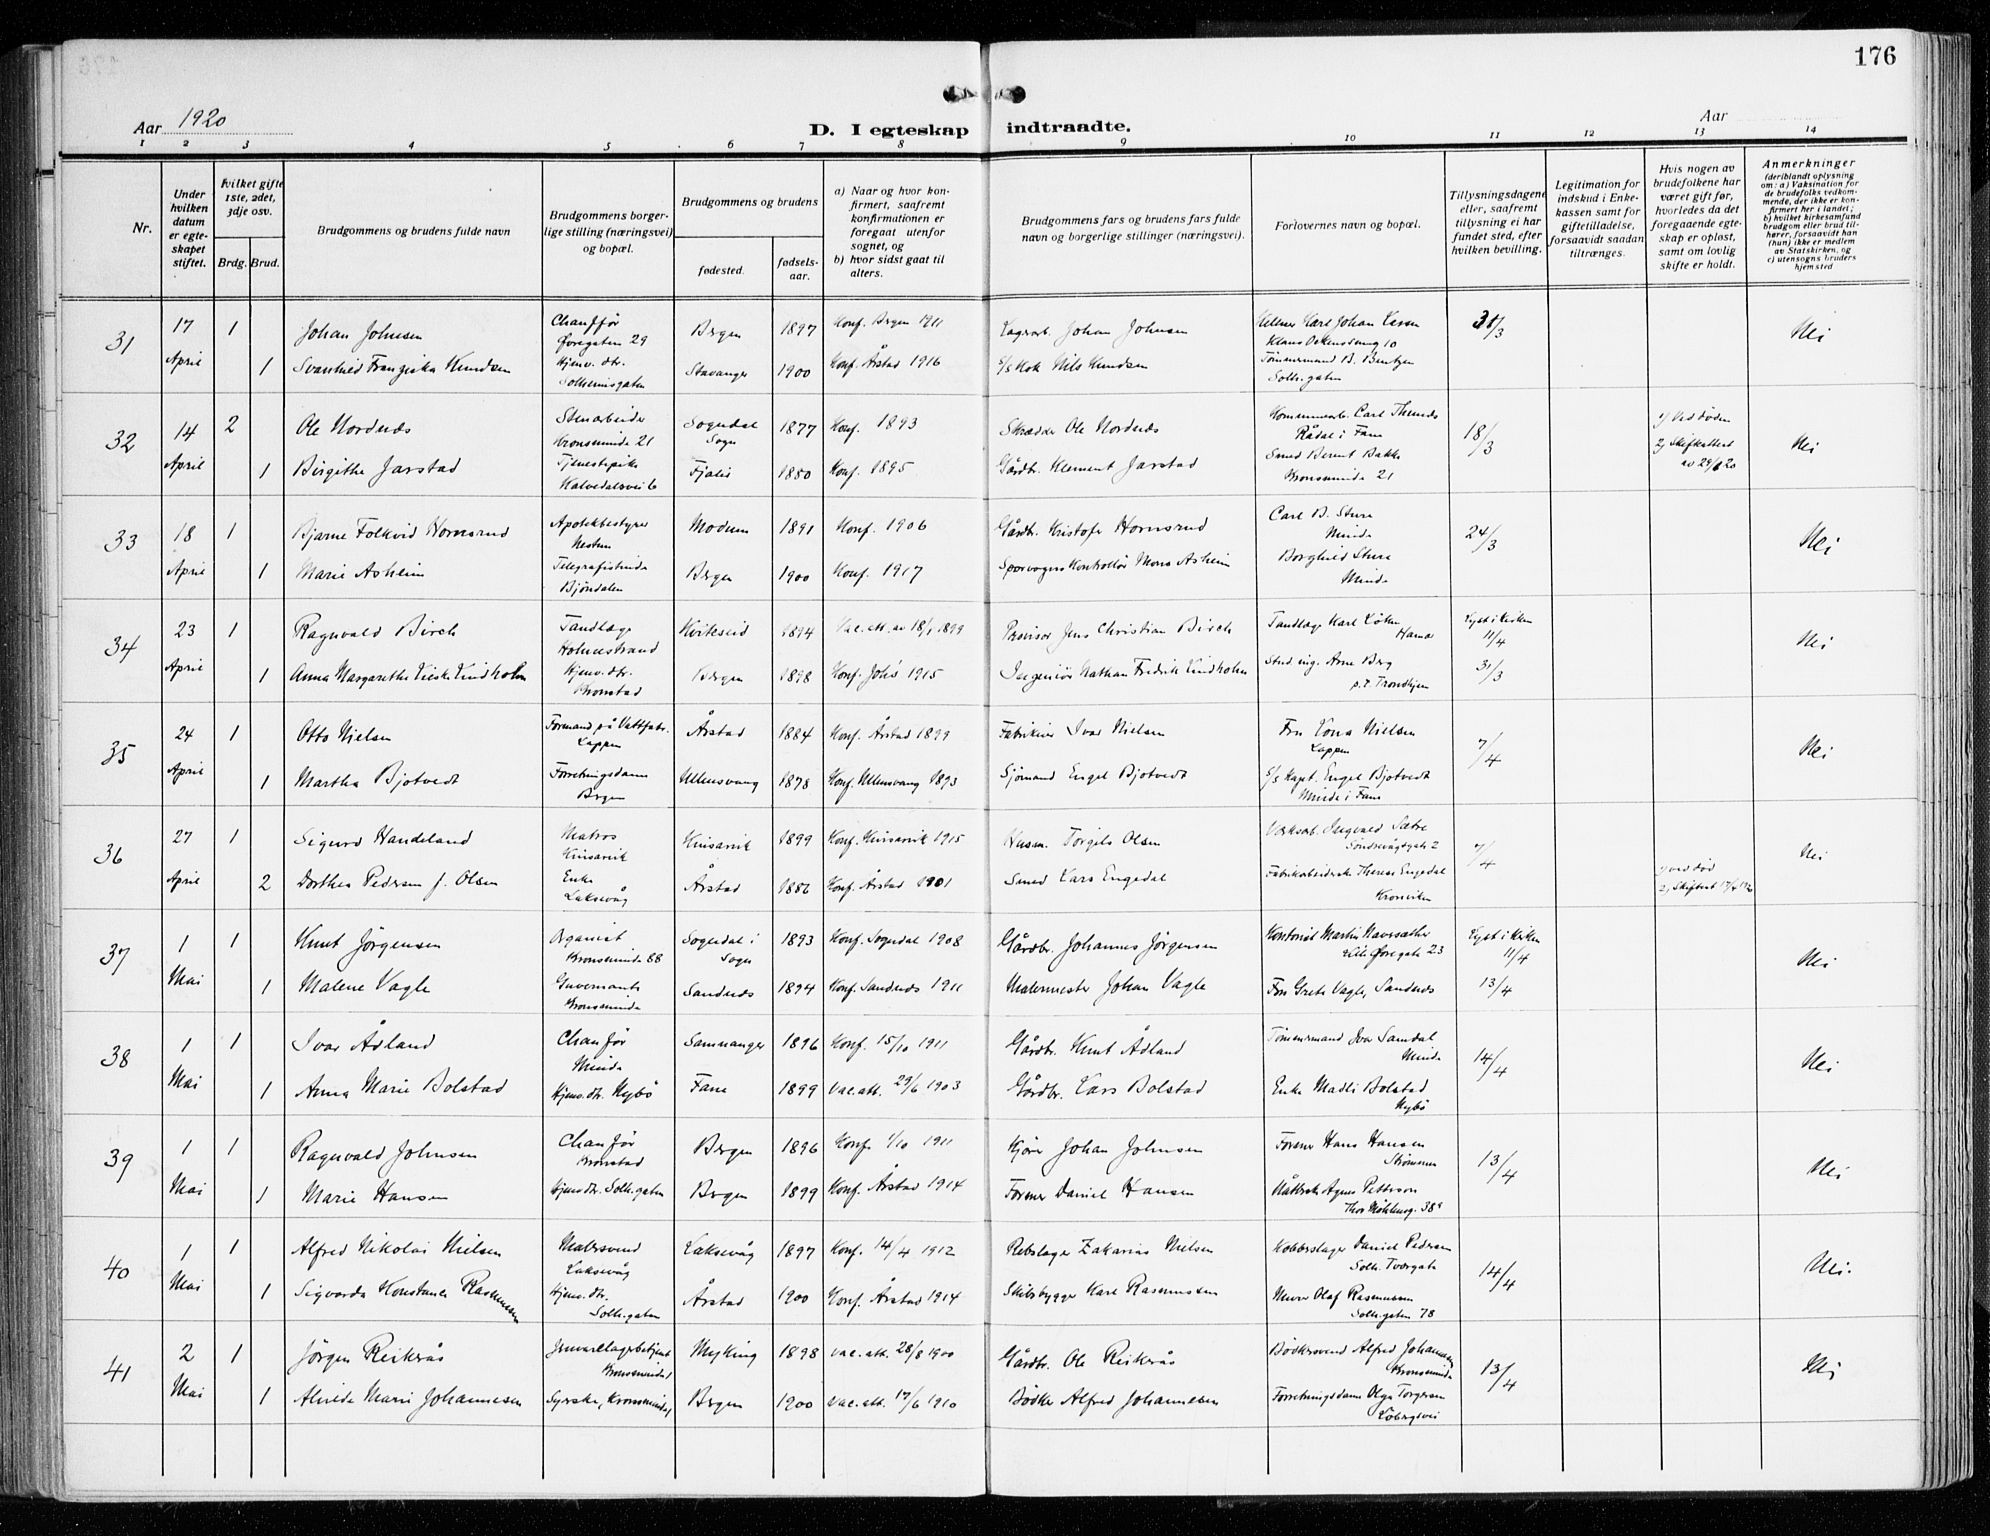 176
Aar 1920
D. I egteskap indtraadte.
Aar
1 2 3 4 5 6 7 8 9 10 11 12 13 14
Nr.
Under hvilken datum er egteskapet stiftet.
hvilket gifte 1ste, 2det, 3dje osv.
Brdg. Brud.
Brudgommens og brudens fulde navn
Brudgommens borgerlige stilling (næringsvei) og bopæl.
Brudgommens og brudens
fødested.
fødselsaar.
a) Naar og hvor konfirmert, saafremt konfirmationen er foregaat utenfor sognet, og
b) hvor sidst gaat til alters.
Brudgommens fars og brudens fars fulde navn og borgerlige stillinger (næringsvei).
Forlovernes navn og bopæl.
Tillysningsdagene eller, saafremt tillysning ei har fundet sted, efter hvilken bevilling.
Legitimation for indskud i Enkekassen samt for giftetilladelse, forsaavidt saadan tiltrænges.
Hvis nogen av brudefolkene har været gift før, hvorledes da det foregaaende egteskap er opløst, samt om lovlig skifte er holdt.
Anmerkninger (deriblandt oplysning om: a) Vaksination for de brudefolks vedkommende, der ikke er konfirmert her i landet; b) hvilket kirkesamfund brudgom eller brud tilhører, forsaavidt han (hun) ikke er medlem av Statskirken, og c) utensogns bruders hjemsted
31 17 April 1 Johan Johnsen Chauffør Øregaten 29 Bergen 1897 Konf. Bergen 1911 Lagerarb. Johan Johnsen Kellner Carl Johan 31/3 Nei
1 Svanhild Franziska Knudsen Hjemv. dtr. Solheimsgaten Stavanger 1900 Konf. Årstad 1916 S/S Kok Nils Knudsen Tømmermand B. Bentzen Solh.gaten
32 14 April 2 Ole Nordnæs Stenarbeider Kronsminde 21 Sogndal Sogn 1877 Konf. 1893 Skrædder Ole Nordnæs Carl Rådal i Fane 18/3 1) Ved døden 2) Skifteattest av 29/ 20 Nei
1 Birgithe Jarstad Tjenestepike Kalvedalsvei 6 Fjaler 1880 Konf. 1895 Gårdbr. Klement Jarstad Smed Berent Bakke Kronsminde 21
33 18 April 1 Bjarne Folkvid Hornsrud Apotekbestyrer Nestun Modum 1891 Konf. 1906 Gårdbr. Kristofer Hornsrud Carl B. Sture Minde 24/3 Nei
1 Marie Asheim Telegrafistinde Bjøndalen Bergen 1900 Konf. 1917 Sporvogns Kontrollør Mons Asheim Borghild Sture Minde
34 23 April 1 Ragnvald Birch Tandlæge Holmestrand Kviteseid 1894 Vac. att. av 18/9 1899 Provisor Jens Christian Birch Tandlæge Karl Løken Hamar Lyst i kirken 11/4 Nei
1 Anna Margarethe Lindholm Hjemv. dtr. Kronstad Bergen 1898 Konf. Johs 1915 Ingeniør Nathan Fredrik Lindholm Stud. ing. Arne Berg p.t. Trondhjem 31/3
35 24 April 1 Otto Nielsen Formand på Vattfabr. Lappen Årstad 1884 Konf. Årstad 1899 Fabrikeier Ivar Nielsen Fru Lona Nielsen Lappen 7/4 Nei
1 Martha Bjotvedt Forretningsdame Bergen Ullensvang 1878 Konf. Ullensvang 1893 Sjømand Engel Bjotvedt S/S Kapt. Engel Bjotvedt Minde i Fane
36 27 April 1 Sigurd Handeland Matros Kinsarvik Kinsarvik 1899 Konf. Kinsarvik 1915 Husm. Torgils Olsen Verksarb. Ingvald Sætre Søndrevågsgate 2 7/4 Nei
2 Dorthea Pedersen f. Olsen Enke Laksevåg Årstad 1886 Konf. Årstad 1901 Smed Lars Engedal Fabrikarbeiderske Therese Engedal Kronviken 1) ved død 2) Skifteatt 17/4 1920
37 1 Mai 1 Knut Jørgensen Organist Kronsminde 88 Sogndal i Sogn 1893 Konf. Sogndal 1908 Gårdbr. Johannes Jørgensen Kontorist Martin Navesæther Lille Øregate 23 Lyst i kirken 11/4 Nei
1 Malene Vagle Guvernante Kronsminde Sandnæs 1894 Konf. Sandnæs 1911 Malermester Johan Vagle Frn Grete Vagle, Sandnæs 13/4
38 1 Mai 1 Ivar Ådland Chauffør Minde Samnanger 1896 Konf. 15/10 1911 Gårdbr. Knut Ådland Tømmermand Ivar Samdal Minde 14/4 Nei
1 Anna Marie Bolstad Hjemv. dtr. Nybø Fane 1899 Vac. att. 23/6 1903 Gårdbr. Lars Bolstad Enke Madli Bolstad Nybø
39 1 Mai 1 Ragnvald Johnsen Chauffør Kronstad Bergen 1896 Konf. 1/10 1911 Kjører Johan Johnsen Former Hans Hansen Strømmen 13/4 Nei
1 Marie Hansen Hjemv. dtr. Solh.gaten Bergen 1899 Konf. Årstad 1914 Former Daniel Hansen Agnes Petterson Thor Møhlensg. 38a
40 1 Mai 1 Alfred Nikolai Nielsen Malersvend Laksevåg Laksevåg 1897 Konf. 14/4 1912 Rebslager Zakarias Nielsen Kobberslager Daniel Pedersen Solh. Tvergate 14/4 Nei.
1 Sigvarda Konstance Rasmussen Hjemv. dtr. Solh.gaten Årstad 1900 Konf. Årstad 1914 Skibsbygger Karl Rasmussen Murer Olaf Rasmussen Solh.gaten 78
41 2 Mai 1 Jørgen Reikerås Jernvarelagerbetjent Kronsminde 1 Myking 1898 Vac. att. 28/8 1900 Gårdbr. Ole Reikerås Bødkersvend Alfred Johannesen Kronsminde 13/4 Nei
1 Alvilde Marie Johannesen Syerske, Kronsminde 1 Bergen 1900 Vac. att. 17/6 1910 Bødker Alfred Johannesen Forretningsdame Olga Torgersen Løbergsvei